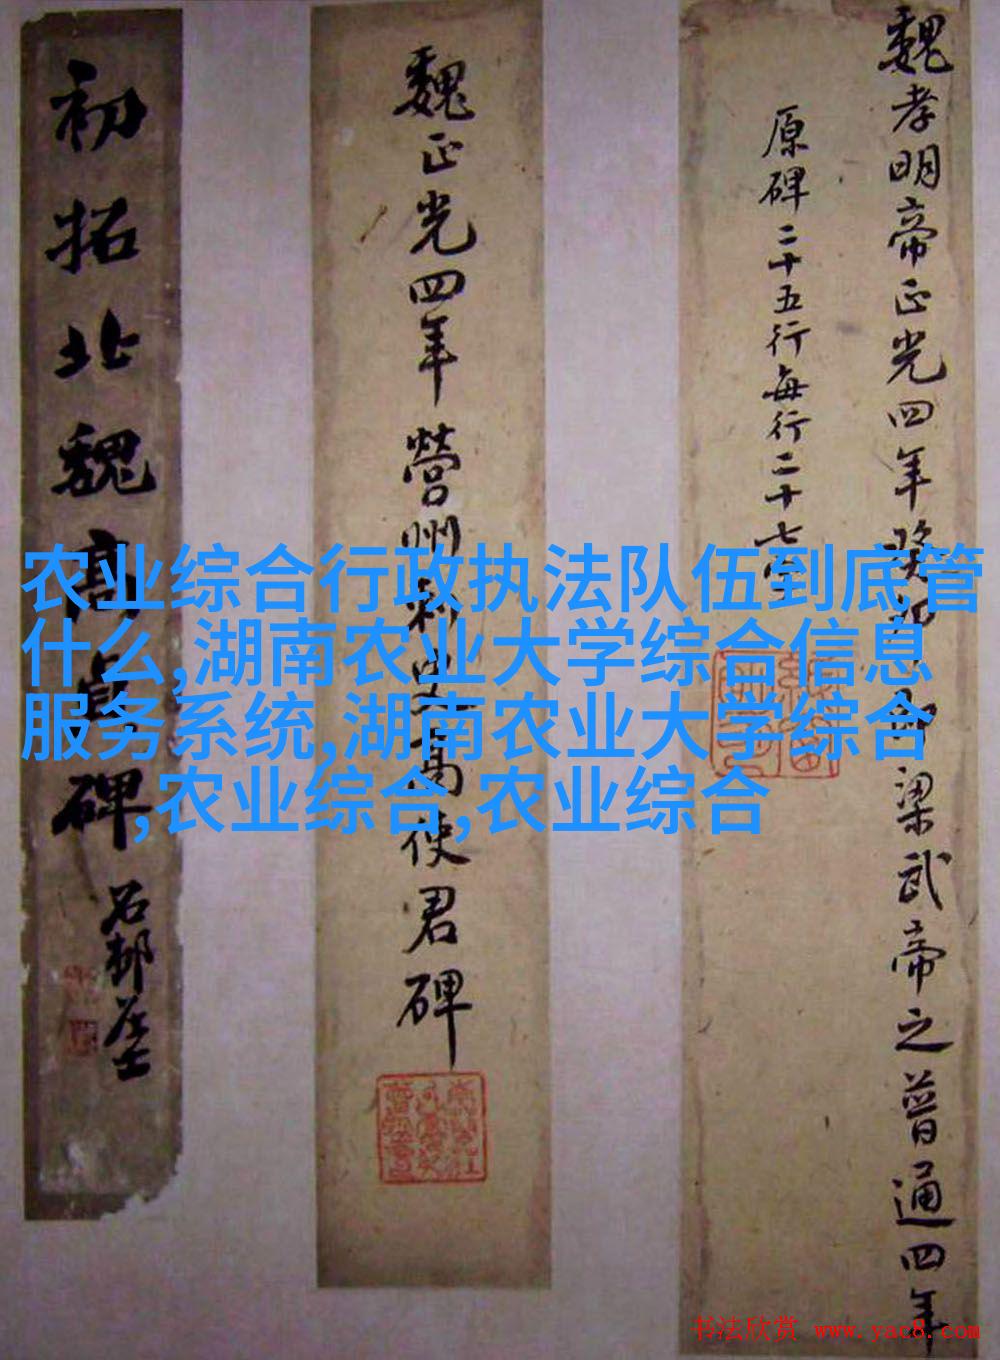 魏孝明帝正光四年癸卯即梁武帝之普通四年
原碑二十五行每行二十七字
魏正光四年營州刺史高使君碑
初拓北魏高貞碑
石邨居士
农业综合行政执法队伍到底管
什么,湖南农业大学综合信息
服务系统,湖南农业大学综合
,农业综合,农业综合
书法欣赏 www.yac8.com